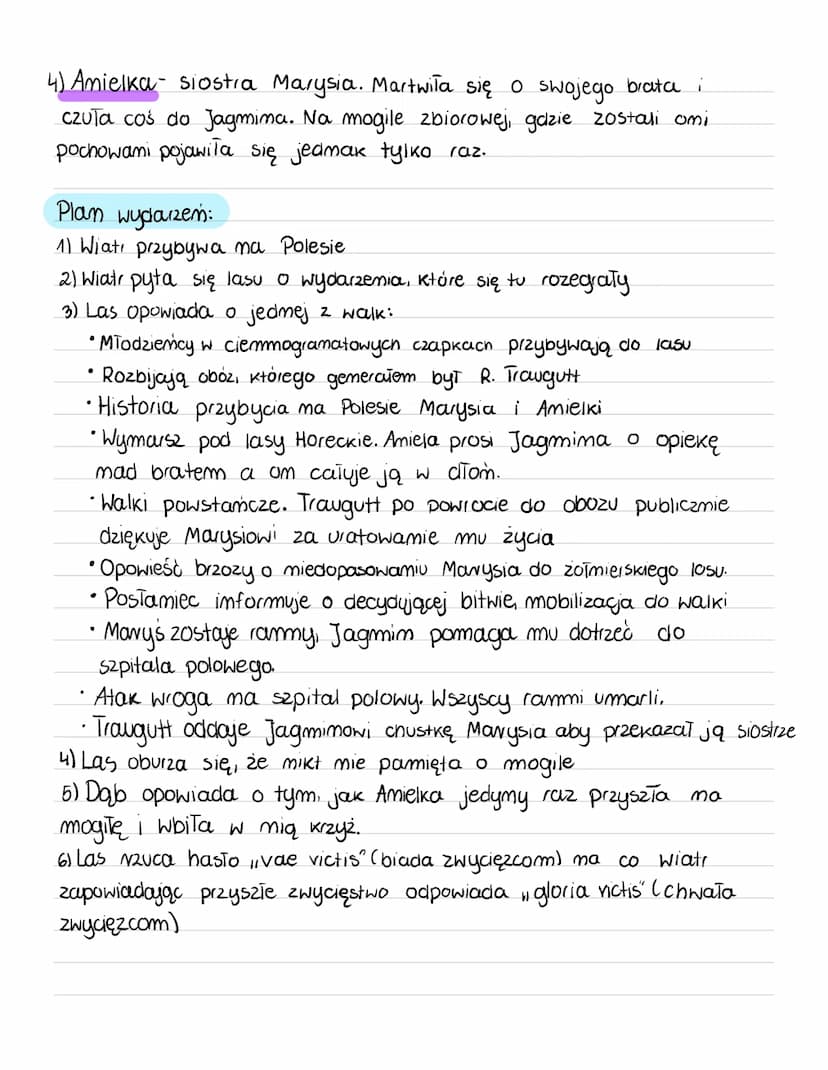 4) Anielka - siostra Marysia. Martwiła się o swojego brata i
czuła coś do Jagmina. Na mogile zbiorowej, gdzie zostali oni
pochowani pojawiła się jednak tylko raz.
Plan wydarzeń:
1) Wiatr przybywa na Polesie
2) Wiatr pyta się lasu o wydarzenia, które się tu rozegrały
3) Las opowiada o jednej z walk:
• Młodzieńcy w ciemnogranatowych czapkach przybywają do lasu
• Rozbijają obóz, którego generałem był R. Traugutt
• Historia przybycia na Polesie Marysia i Anielki
• Wymarsz pod lasy Horeckie. Aniela prosi Jagmina o opiekę
nad bratem a on całuje ją w dłoń.
• Walki powstańcze. Traugutt po powrocie do obozu publicznie
dziękuje Marysiowi za uratowanie mu życia
• Opowieść brzozy o niedopasowaniu Marysia do żołnierskiego losu.
• Posłaniec informuje o decydującej bitwie, mobilizacja do walki
• Maryś zostaje ranny, Jagmin pomaga mu dotrzeć do
szpitala polowego.
• Atak wroga na szpital polowy. Wszyscy ranni umarli.
• Traugutt oddaje Jagminowi chustkę Marysia aby przekazał ją siostrze
4) Las oburza się, że nikt nie pamięta o mogile
5) Dąb opowiada o tym, jak Anielka jedyny raz przyszła na
mogiłę i wbiła w nią krzyż.
6) Las rzuca hasło „vae victis" (biada zwycięzcom) na co wiatr
zapowiadając przyszłe zwycięstwo odpowiada „gloria victis" (chwała
zwycięzcom)